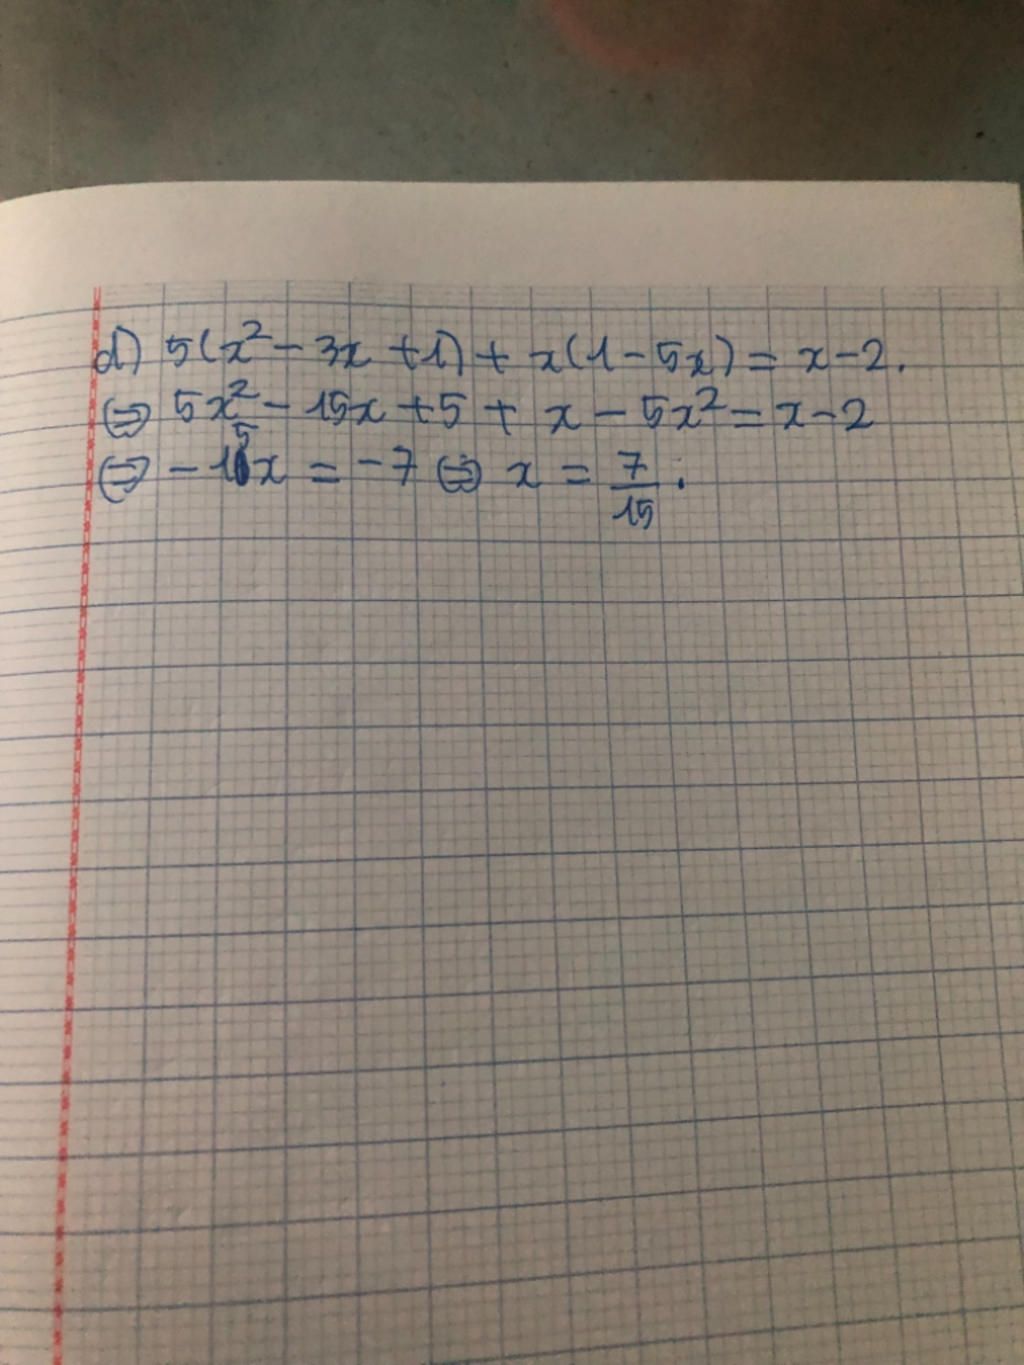 d) 5(x² - 3x + 1) + x(1 - 5x) = x - 2.
⇔ 5x² - 15x + 5 + x - 5x² = x - 2
⇔ -15x = -7 ⇔ x = 7/15.